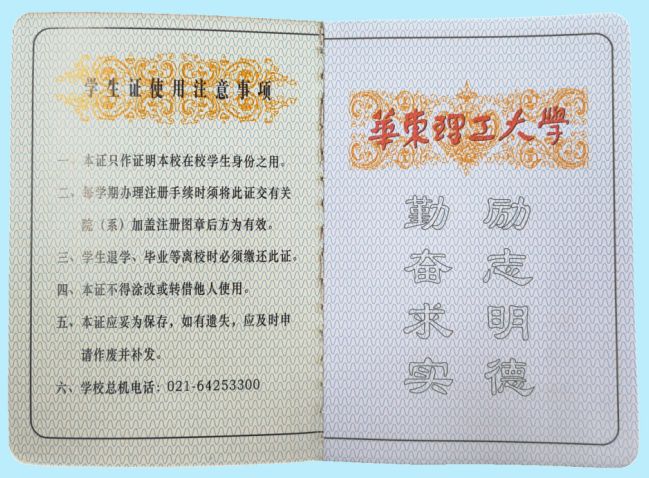 学生证使用注意事项
一、本证只作证明本校在校学生身份之用。
二、每学期办理注册手续时须将此证交有关
院（系）加盖注册图章后方为有效。
三、学生退学、毕业等离校时必须缴还此证。
四、本证不得涂改或转借他人使用。
五、本证应妥为保存，如有遗失，应及时申
请作废并补发。
六、学校总机电话：021-64253300
華東理工大學
励志明德
勤奋求实